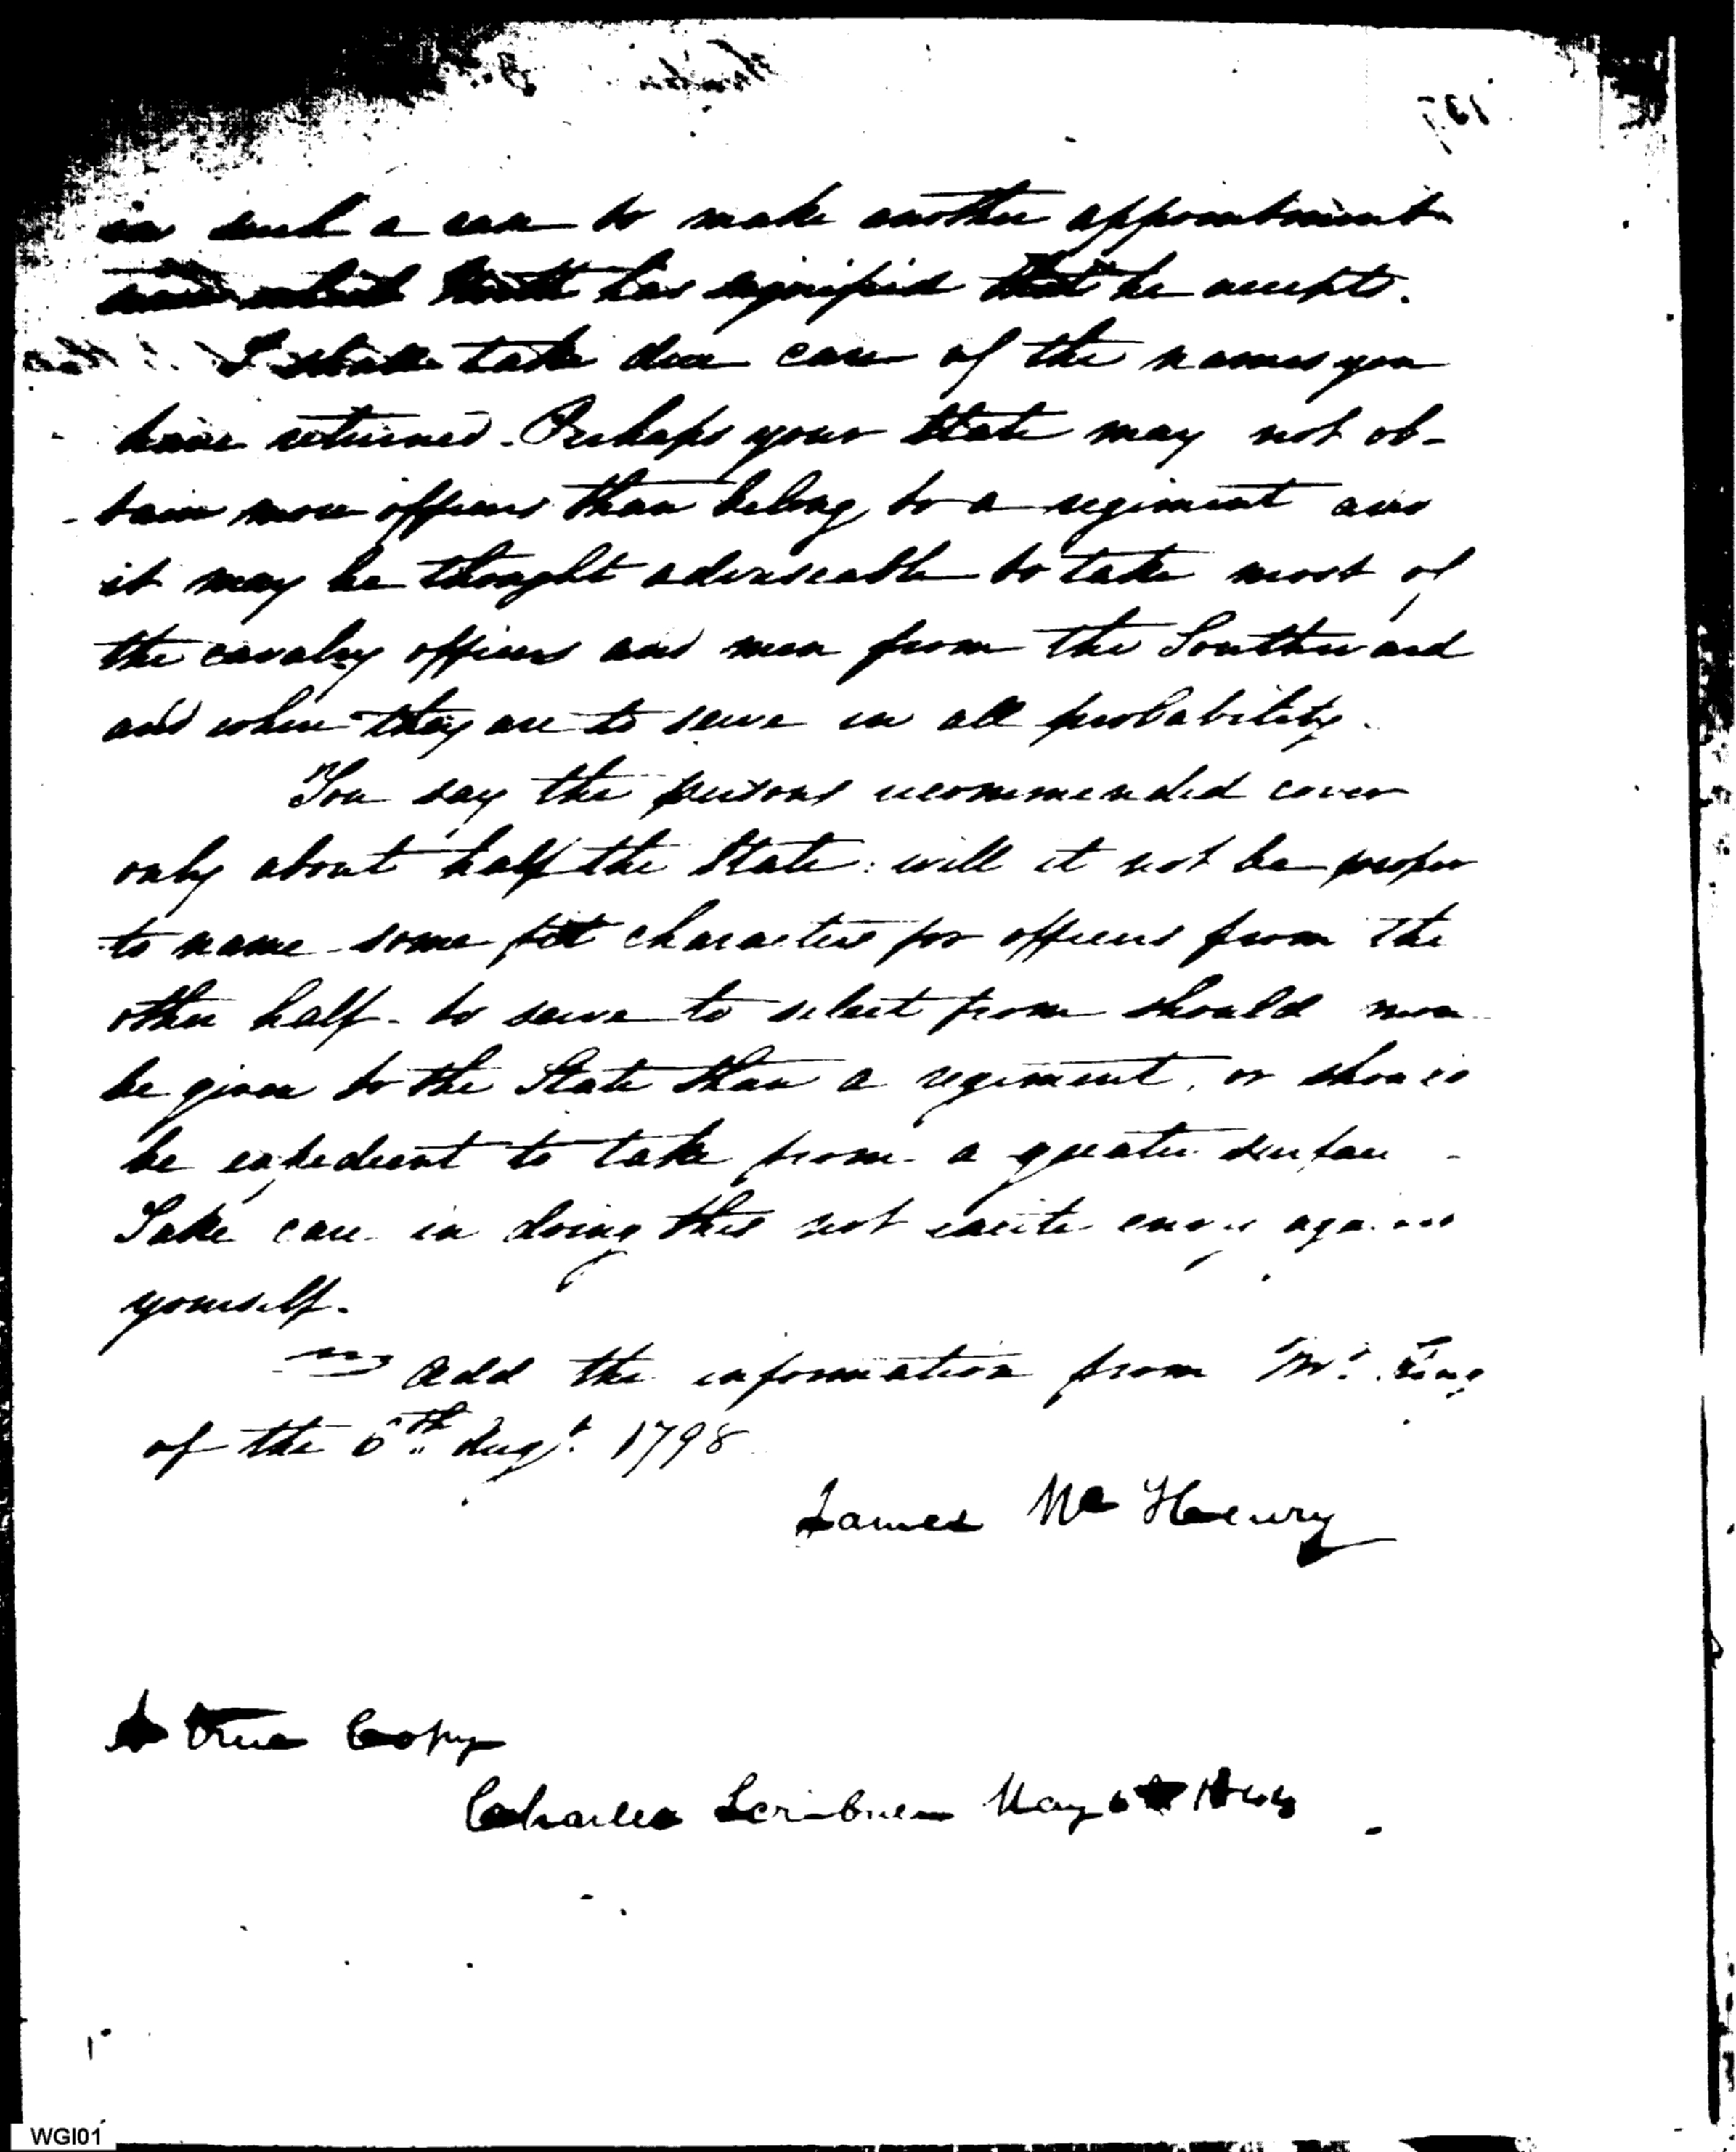 in such a case to make another appointment
Smith has signified that he accepts.
I shall take due care of the names you
have returned. Perhaps your State may not ob-
tain more officers than belong to a regiment and
it may be thought adviseable to take most of
the cavalry officers and men from the Southward
and where they are to serve in all probability.
You say the persons recommended cover
only about half the State: will it not be proper
to name some fit characters for officers from the
other half - to serve to select from should more
be given to the State than a regiment, or
be expedient to take from a greater surface -
Take care in doing this not excite envy against
yourself.
Add the information from Mr. King
of the 6th Augt. 1798
James McHenry
A true Copy
Charles Scribner May
WGI01